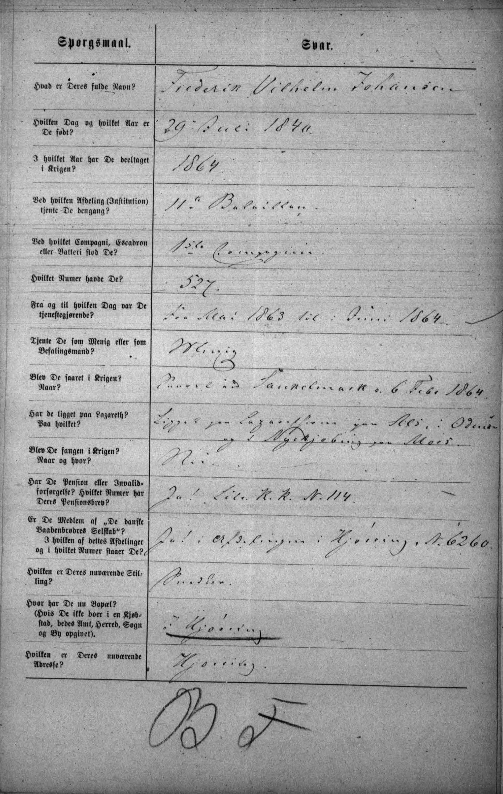 Spørgsmaal.
Svar.
Hvad er Deres fulde Navn?
Frederik Vilhelm Johansen
Hvilken Dag og hvilket Aar er
De født?
29 Juli 1840
I hvilket Aar har De deeltaget
i Krigen?
1864
Ved hvilken Afdeling (Institution)
tjente De dengang?
11te Batallion
Ved hvilket Compagni, Escadron
eller Batteri stod De?
1ste Compagni
Hvilket Numer havde De?
527.
Fra og til hvilken Dag var De
tjenestegjørende?
Fra Mai 1863 til i Juni 1864
Tjente De som Menig eller som
Befalingsmand?
Menig
Blev De saaret i Krigen?
Naar?
Saaret ved Sankelmark d. 6 Febr 1864
Har de ligget paa Lazareth?
Paa hvilket?
Ligget paa Lazaretherne paa Als, i Odense
og i Nykjøbing paa Mors.
Blev De fangen i Krigen?
Naar og hvor?
Nei
Har De Pension eller Invalid-
forsørgelse? Hvilket Numer har
Deres Pensionsbrev?
Ja! Litr. K.K. N. 114.
Er De Medlem af „De danske
Vaabenbrødres Selskab“?
I hvilken af dettes Afdelinger
og i hvilket Numer staaer De?
Ja! i Afdelingen i Hjørring N. 6260
Hvilken er Deres nuværende Stil-
ling?
Snedker.
Hvor har De nu Bopæl?
(Hvis De ikke boer i en Kjøb-
stad, bedes Amt, Herred, Sogn
og By opgivet).
I Hjørring
Hvilken er Deres nuværende
Adresse?
Hjørring.
B F